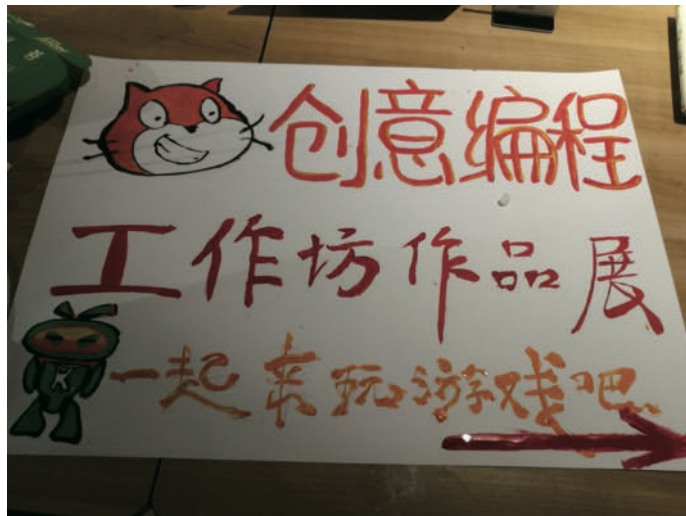 创意编程
工作坊作品展
一起来玩游戏吧